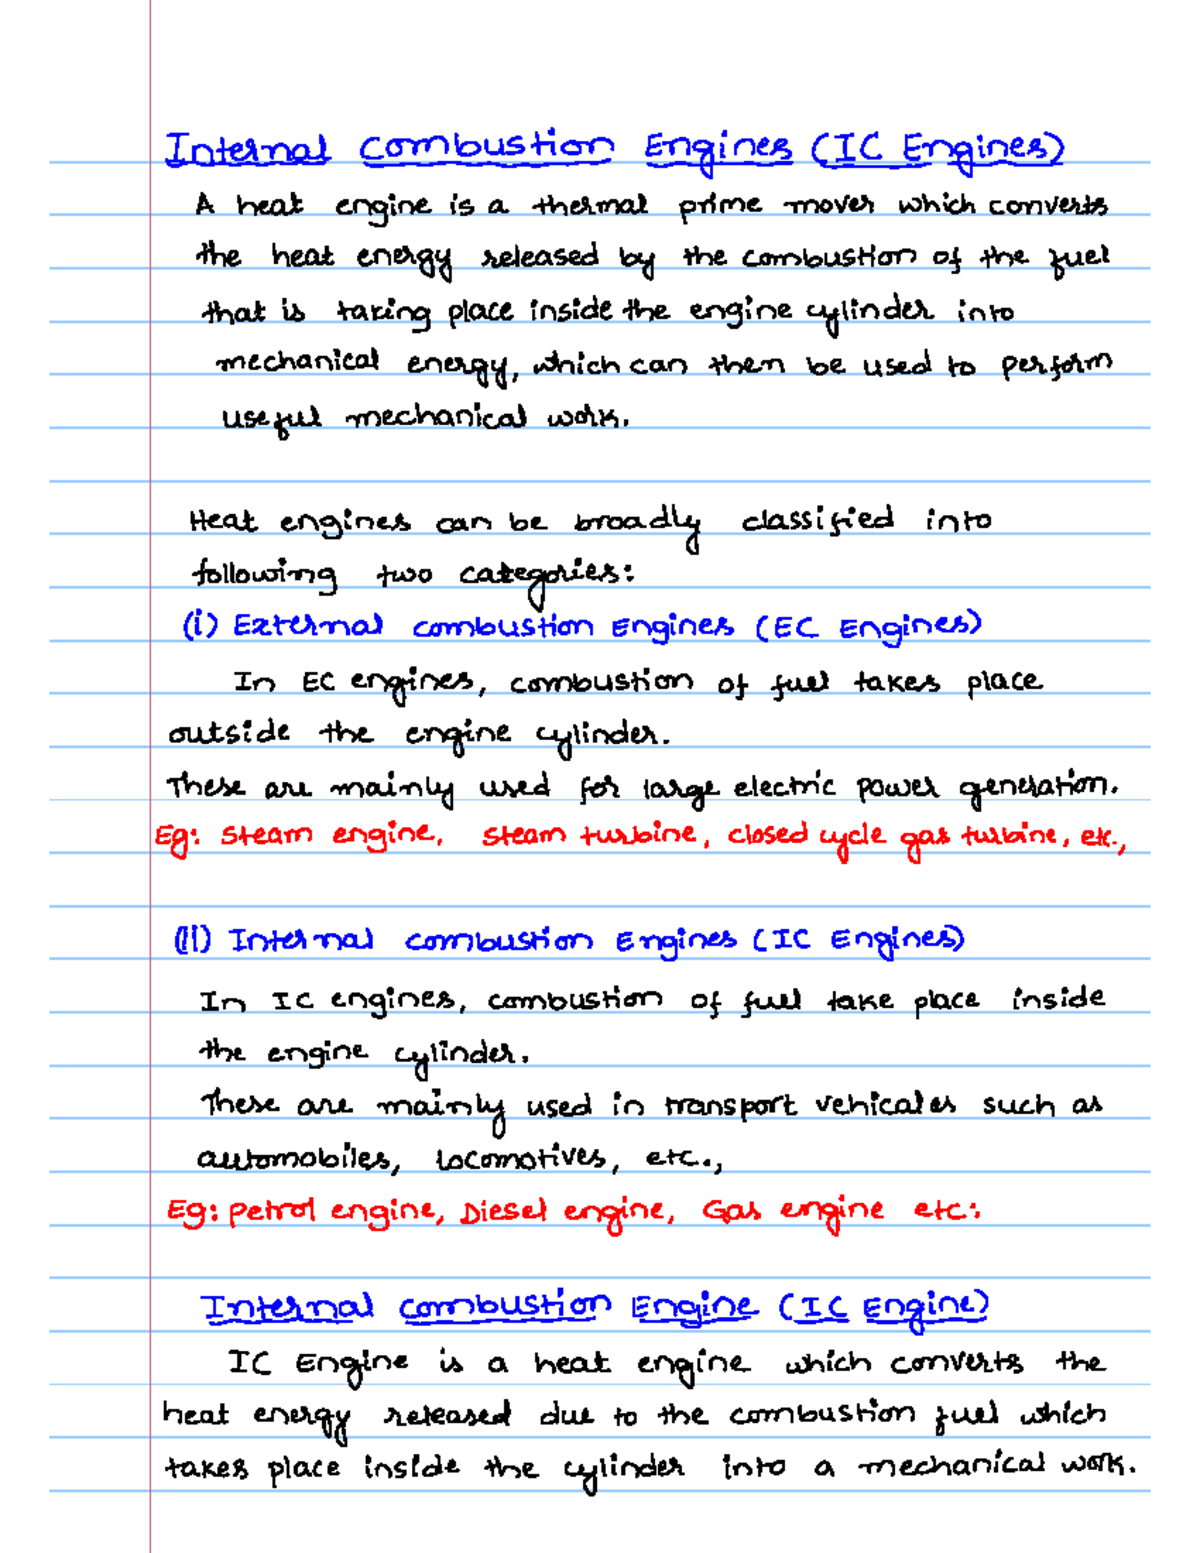 Internal Combustion Engines (IC Engines)
A heat engine is a thermal prime mover which converts
the heat energy released by the combustion of the fuel
that is taking place inside the engine cylinder into
mechanical energy, which can them be used to perform
useful mechanical work.
Heat engines can be broadly classified into
following two categories:
(i) External combustion Engines (EC Engines)
In EC engines, combustion of fuel takes place
outside the engine cylinder.
These are mainly used for large electric power generation.
Eg: Steam engine, steam turbine, closed cycle gas turbine, etc.,
(ii) Internal combustion Engines (IC Engines)
In IC engines, combustion of fuel take place inside
the engine cylinder.
These are mainly used in transport vehicales such as
automobiles, locomotives, etc.,
Eg: petrol engine, Diesel engine, Gas engine etc:
Internal combustion Engine (IC Engine)
IC Engine is a heat engine which converts the
heat energy released due to the combustion fuel which
takes place inside the cylinder into a mechanical work.